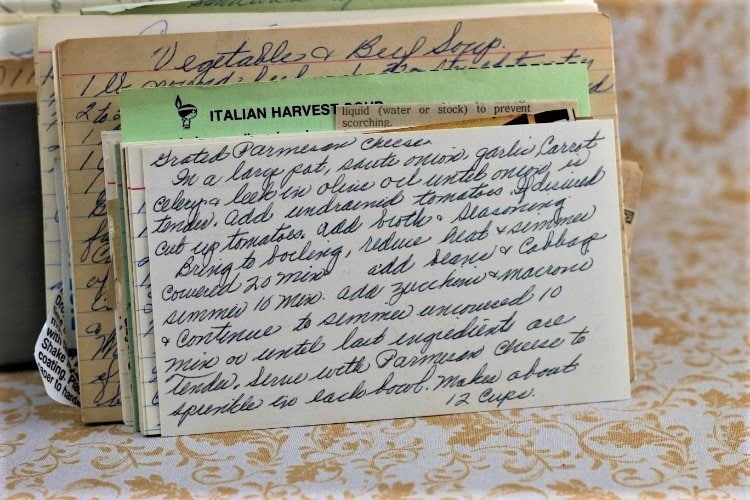 Vegetables & Beef Soup.
ITALIAN HARVEST SOUP
liquid (water or stock) to prevent
scorching.
Grated Parmesan cheese.
In a large pot, saute onion, garlic, Carrot
celery & leek in olive oil until onion is
tender. Add undrained tomatoes. If desired
cut up tomatoes. Add broth & seasoning
Bring to boiling, reduce heat & simmer
covered 20 min. add beans & Cabbage
simmer 10 min. add zucchini & macroni
& continue to simmer uncovered 10
min or until last ingredients are
tender. Serve with Parmesan cheese to
sprinkle in each bowl. Makes about
12 Cups.
with
Shake
coating.